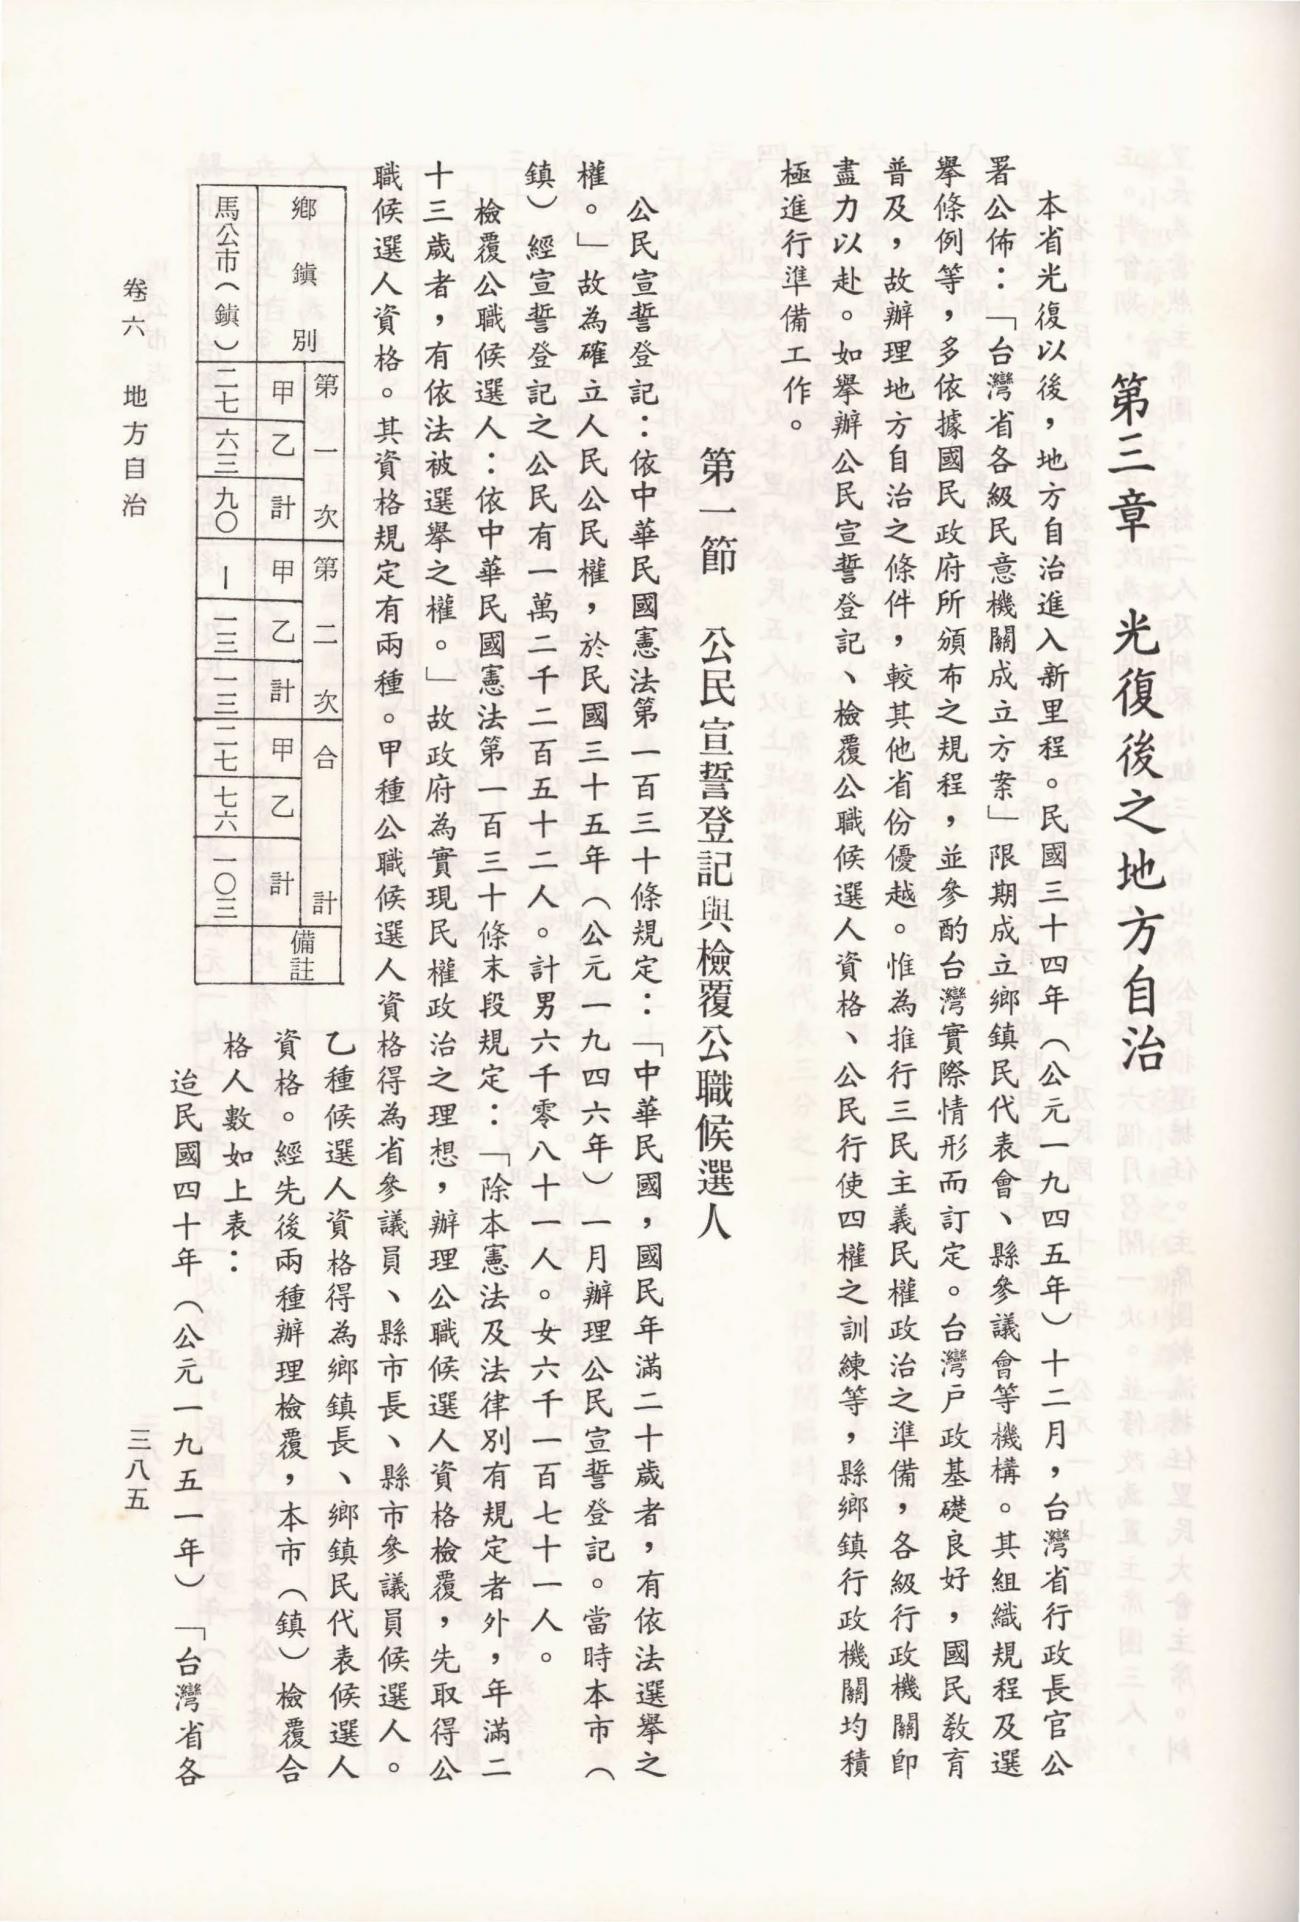 第三章　光復後之地方自治
本省光復以後，地方自治進入新里程。民國三十四年（公元一九四五年）十二月，台灣省行政長官公
署公佈：「台灣省各級民意機關成立方案」限期成立鄉鎮民代表會、縣參議會等機構。其組織規程及選
擧條例等，多依據國民政府所頒布之規程，並參酌台灣實際情形而訂定。台灣戶政基礎良好，國民敎育
普及，故辦理地方自治之條件，較其他省份優越。惟為推行三民主義民權政治之準備，各級行政機關卽
盡力以赴。如擧辦公民宣誓登記、檢覆公職候選人資格、公民行使四權之訓練等，縣鄉鎮行政機關均積
極進行準備工作。
第一節　公民宣誓登記與檢覆公職候選人
公民宣誓登記：依中華民國憲法第一百三十條規定：「中華民國，國民年滿二十歲者，有依法選擧之
權。」故為確立人民公民權，於民國三十五年（公元一九四六年）一月辦理公民宣誓登記。當時本市（
鎮）經宣誓登記之公民有一萬二千二百五十二人。計男六千零八十一人。女六千一百七十一人。
檢覆公職候選人：依中華民國憲法第一百三十條末段規定：「除本憲法及法律別有規定者外，年滿二
十三歲者，有依法被選擧之權。」故政府為實現民權政治之理想，辦理公職候選人資格檢覆，先取得公
職候選人資格。其資格規定有兩種。甲種公職候選人資格得為省參議員、縣市長、縣市參議員候選人。
乙種候選人資格得為鄉鎮長、鄉鎮民代表候選人
資格。經先後兩種辦理檢覆，本市（鎮）檢覆合
格人數如上表：
迨民國四十年（公元一九五一年）「台灣省各
鄉鎮別　第一次　第二次　合計　備註
甲　乙　計　甲　乙　計　甲　乙　計
馬公市（鎮）　二七　六三　九〇　—　一三　一三　二七　七六　一〇三
卷六　地方自治
三八五